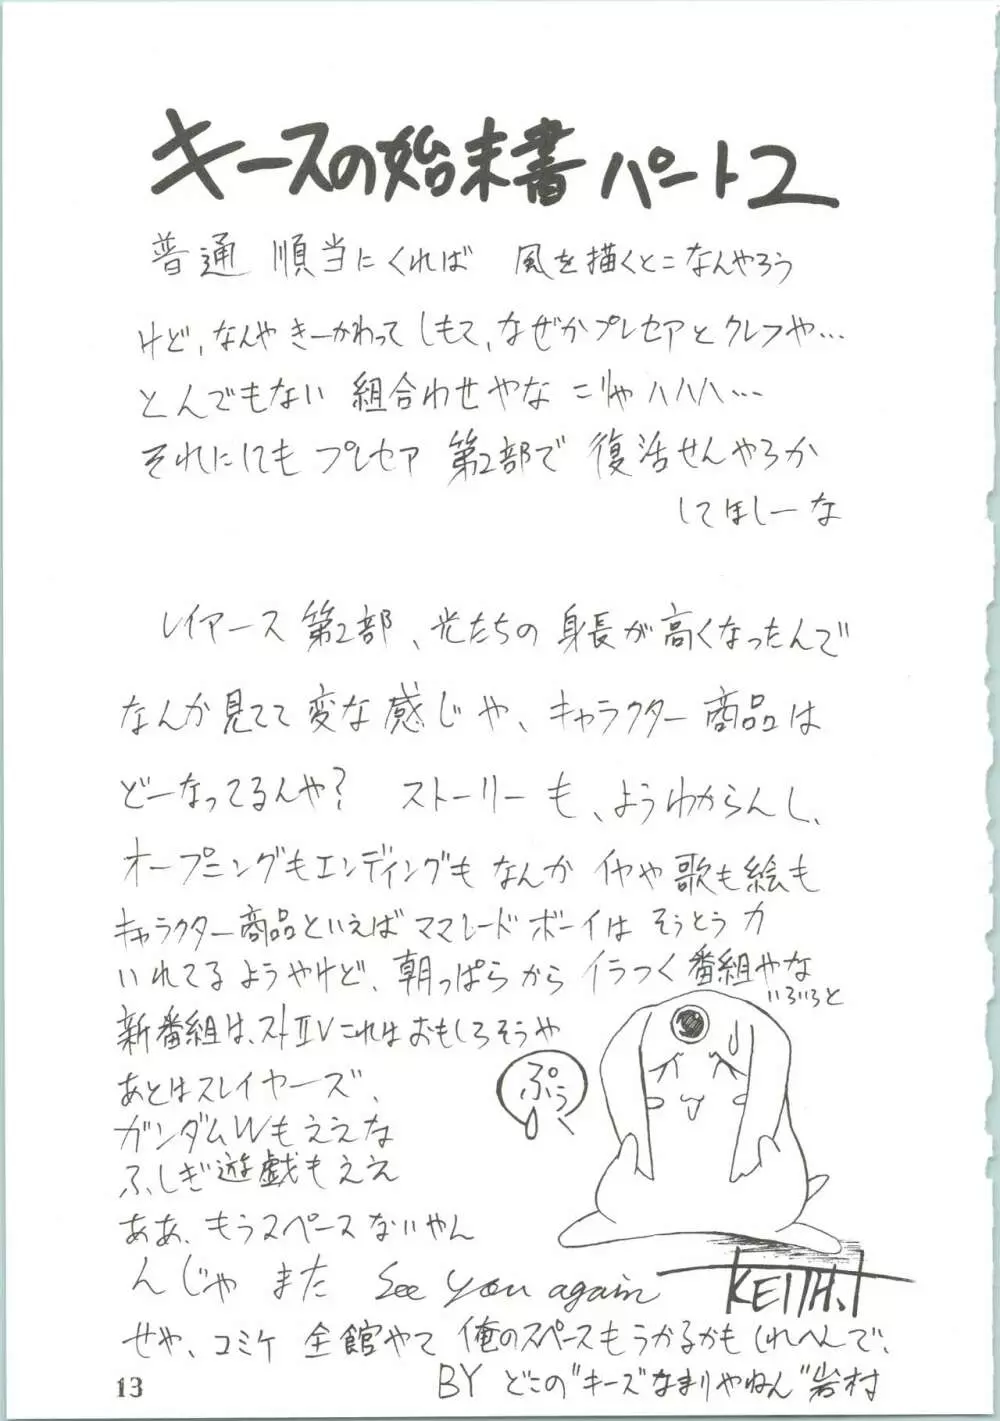 キースの始末書 パート2
普通 順当にくれば 風を描くとこなんやろう
けど、なんや きーかわってしもて、なぜかプレセアとクレフや…
とんでもない 組合わせやな こりゃ ハハハ…
それにしても プレセア 第2部で 復活せんやろか
してほしーな
レイアース 第2部、光たちの 身長が高くなったんで
なんか見てて 変な感じや、キャラクター商品は
どーなってるんや? ストーリーも、ようわからんし、
オープニングもエンディングも なんか イヤや 歌も絵も
キャラクター商品といえば ママレードボーイは そうとう力
いれてるようやけど、朝っぱらから イラつく番組やな
いろいろと
新番組は、ストⅡV これは おもしろそうや
あとはスレイヤーズ、
ガンダムWもええな
ふしぎ遊戯もええ
ああ、もうスペースないやん
ぷぅ
んじゃ また See you again
KEITH.I
せや、コミケ 全館やて 俺のスペースもうかるかもしれへんで、
BY どこの"キーズ"なまりやねん"岩村
13